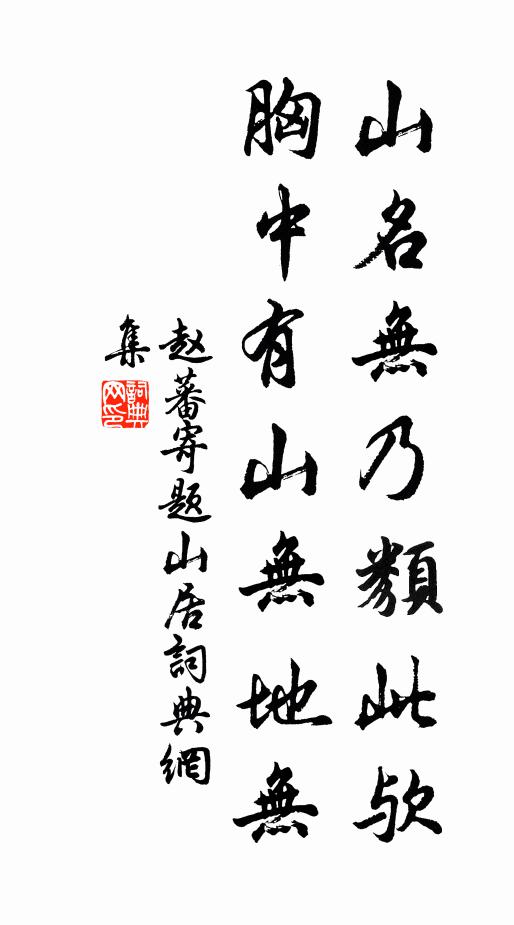 山名無乃類此歟
胸中有山無地無
赵蕃寄题山居詞典網
集
詞典網印